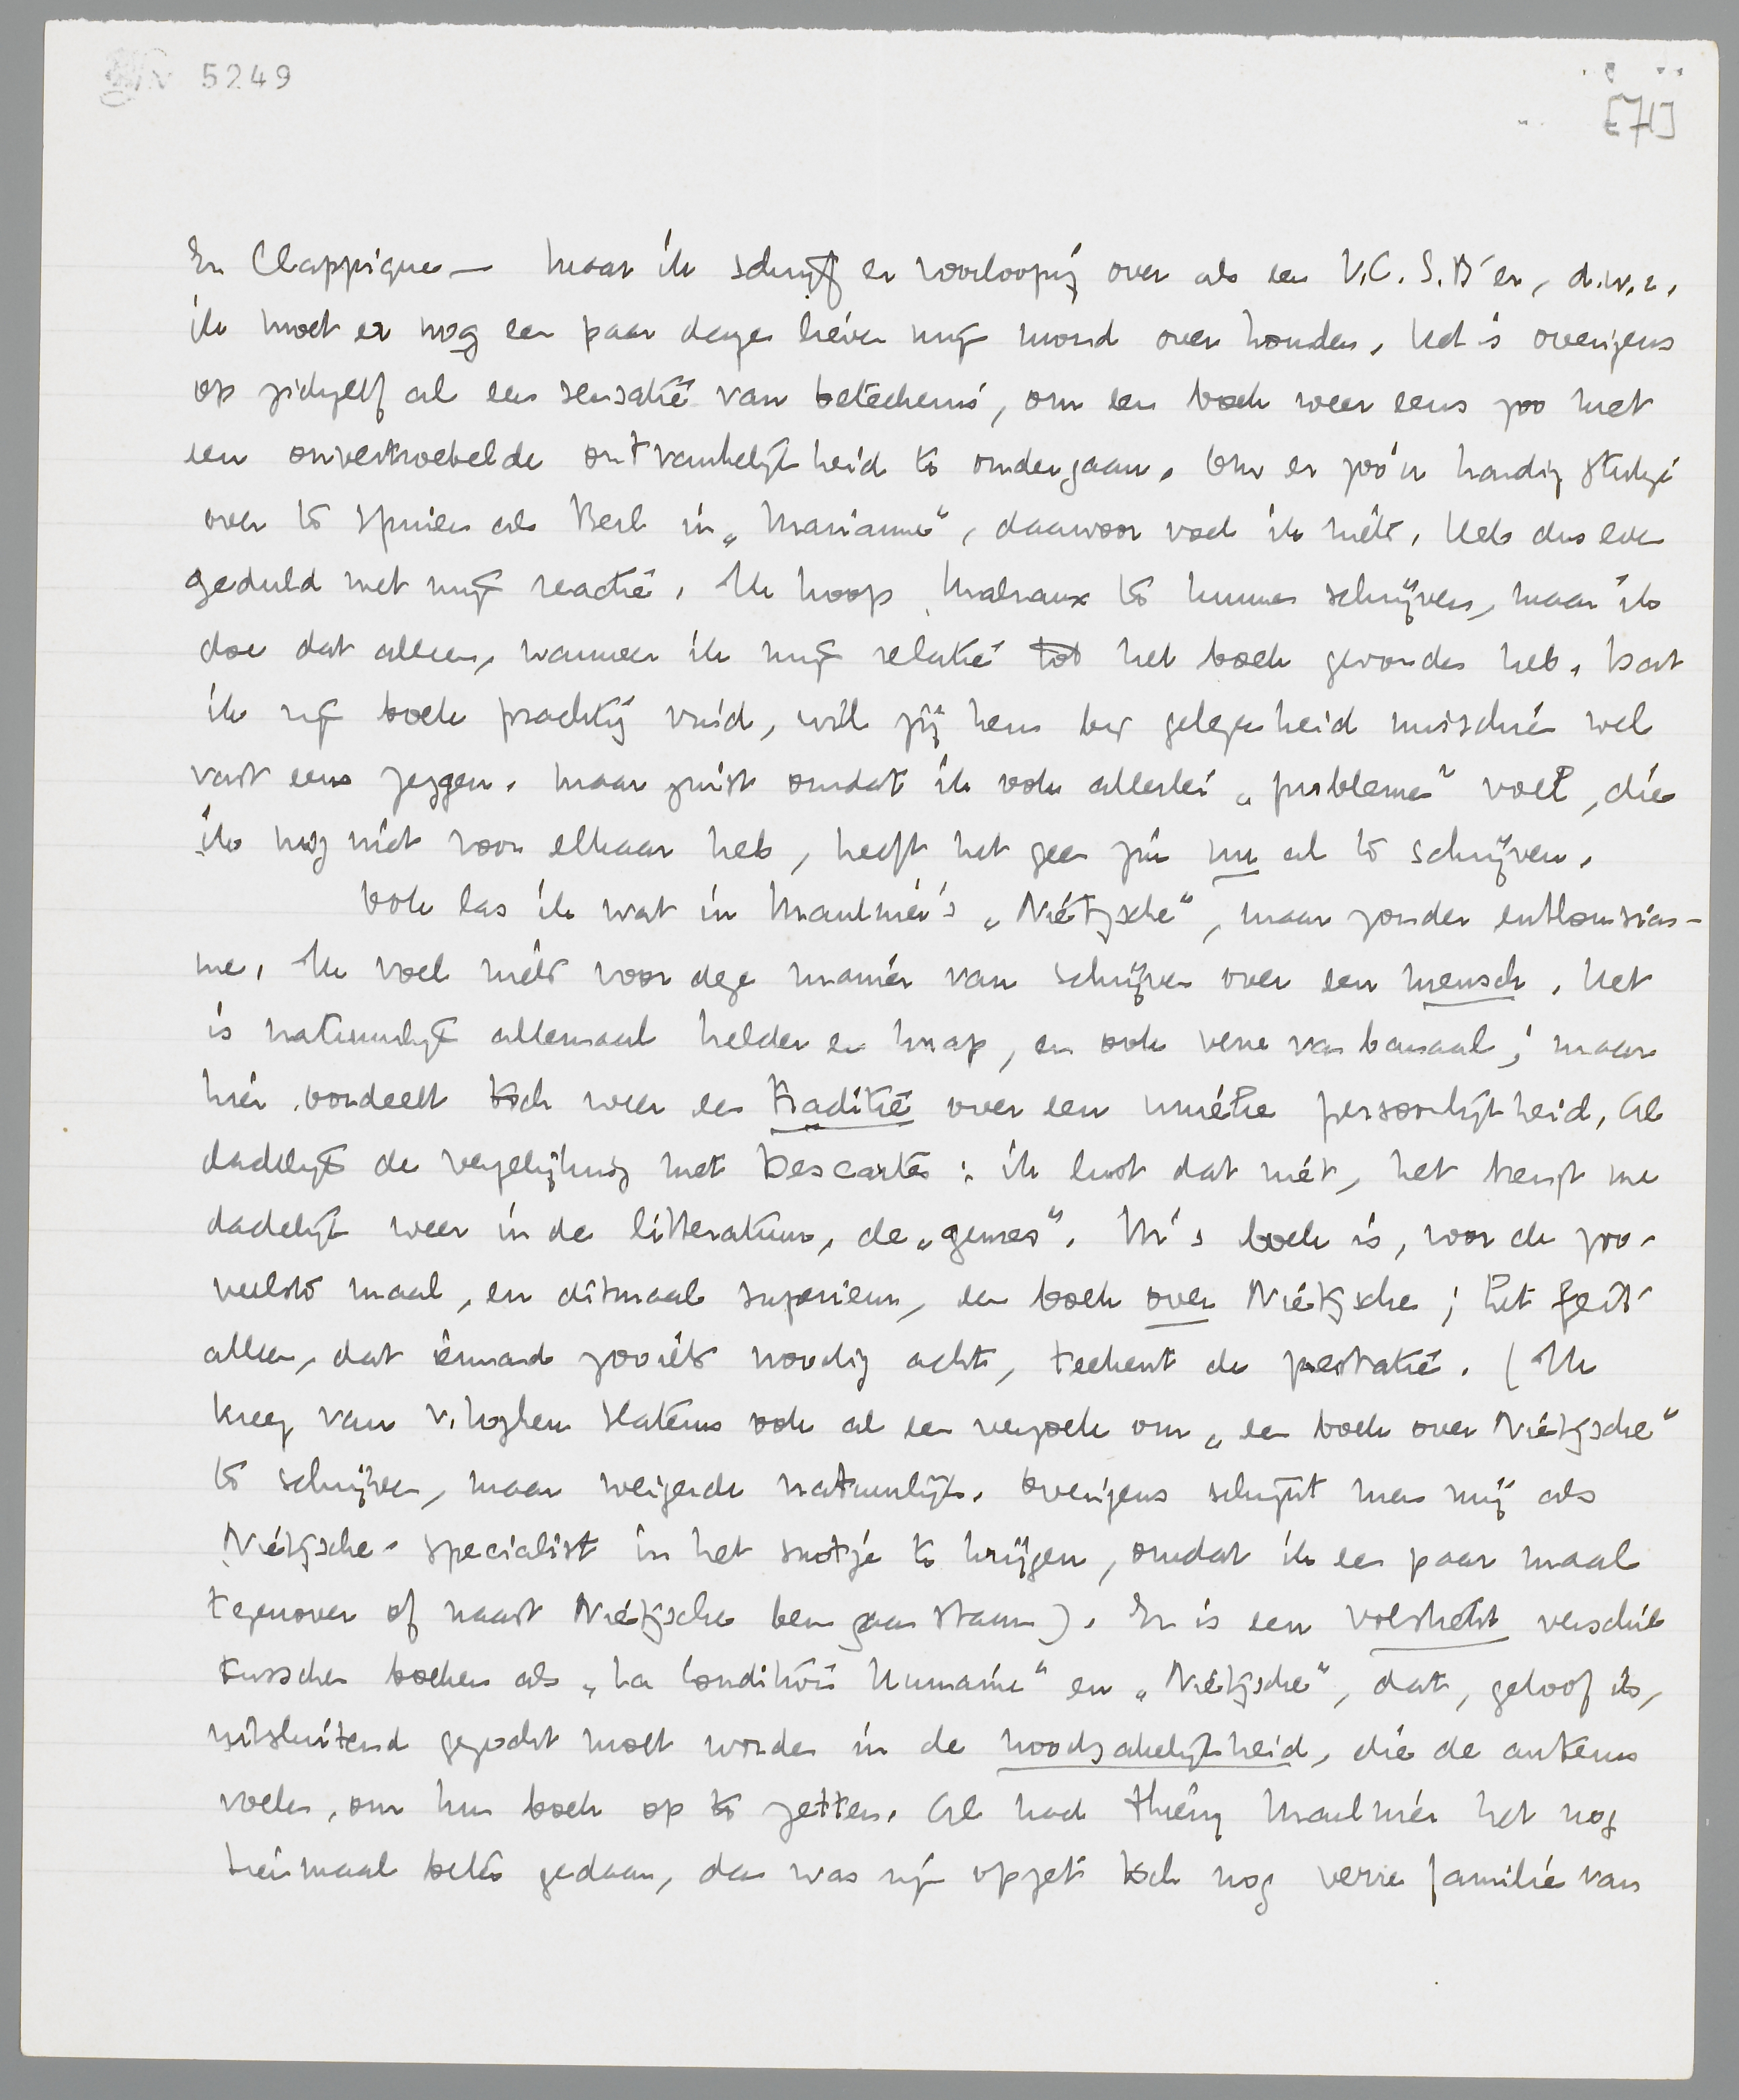 5249
[71]
En Clappique — Maar ik schrijf er voorloopig over als een V.C.S.B'er, d.w.z.
ik moet er nog een paar dagen liever mijn mond over houden. Het is overigens
op zichzelf al een sensatie van beteekenis, om een boek weer eens zoo met
een onvertroebelde ontvankelijkheid te ondergaan. Om er zoo'n handig stukje
over te schrijven als Berl in „Marianne", daarvoor voel ik niets. Heb dus even
geduld met mijn reactie. Ik hoop Malraux te kunnen schrijven, maar ik
doe dat alleen, wanneer ik mijn relatie tot het boek gevonden heb. Dat
ik zijn boek prachtig vind, wil jij hem bij gelegenheid misschien wel
vast eens zeggen. Maar juist omdat ik ook allerlei „problemen" voel, die
ik nog niet voor elkaar heb, heeft het geen zin nu al te schrijven.
Ook las ik wat in Maulnier's „Nietzsche", maar zonder enthousias-
me. Ik voel niets voor deze manier van schrijven over een mensch. Het
is natuurlijk allemaal helder en knap, en ook verre van banaal; maar
hier oordeelt toch weer een traditie over een unieke persoonlijkheid. Al
dadelijk de vergelijking met Descartes: ik lust dat niet, het brengt me
dadelijk weer in de litteratuur, de „genres". M's boek is, voor de zoo-
veelste maal, en ditmaal superieur, een boek over Nietzsche; het feit
alleen, dat iemand zooiets noodig acht, teekent de prestatie. (Ik
kreeg van v. Loghem Slaterus ook al een verzoek om „een boek over Nietzsche"
te schrijven, maar weigerde natuurlijk. Overigens schijnt men mij als
Nietzsche-specialist in het snotje te krijgen, omdat ik een paar maal
tegenover of naast Nietzsche ben gaan staan). Er is een volstrekt verschil
tusschen boeken als „La Condition Humaine" en „Nietzsche", dat, geloof ik,
uitsluitend gezocht moet worden in de noodzakelijkheid, die de auteurs
voelen, om hun boek op te zetten. Al had Thierry Maulnier het nog
tienmaal beter gedaan, dan was zijn opzet toch nog verre familie van